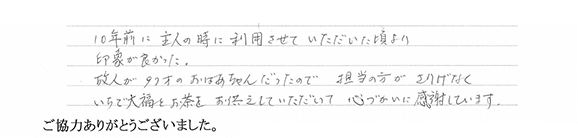 10年前に主人の時に利用させていただいた頃より
印象が良かった。
故人が97才のおばあちゃんだったので 担当の方がさりげなく
いちご大福とお茶をお供えしていただいて 心づかいに感謝しています.
ご協力ありがとうございました。